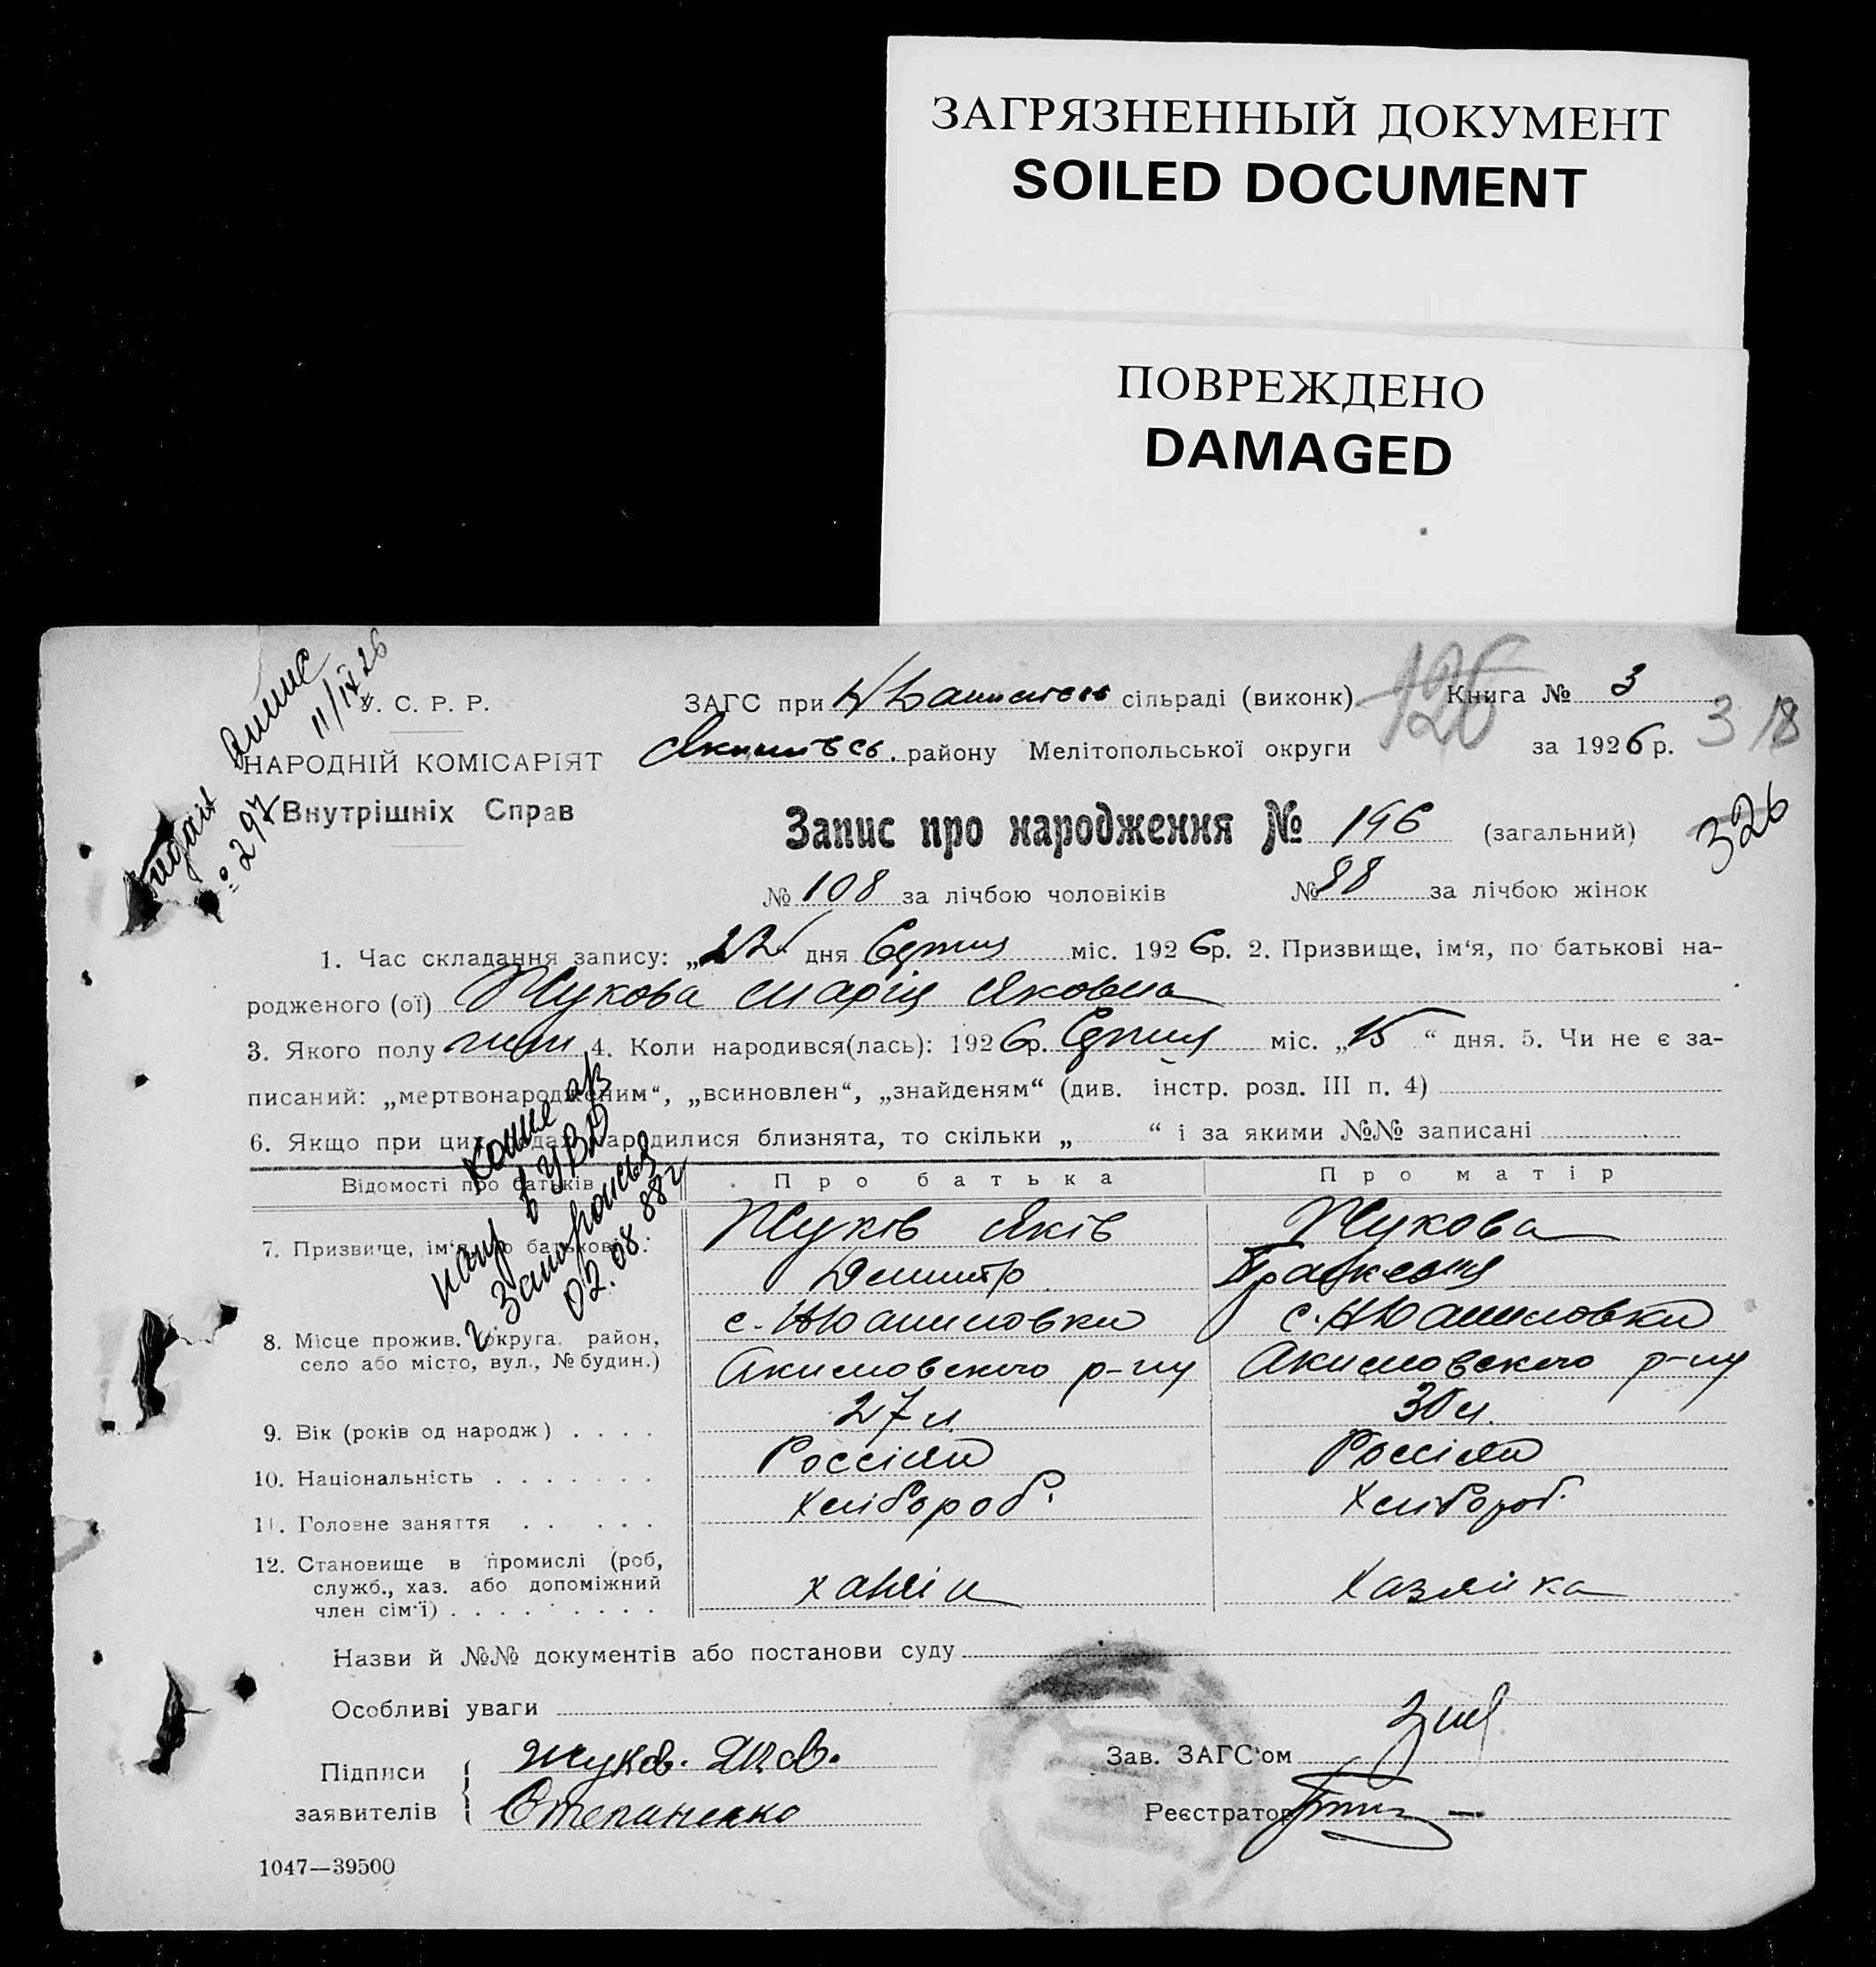 ЗАГРЯЗНЕННЫЙ ДОКУМЕНТ
SOILED DOCUMENT
ПОВРЕЖДЕНО
DAMAGED
11/IX 26
№ 297
У. С. Р. Р.
НАРОДНІЙ КОМІСАРІЯТ
Внутрішніх Справ
ЗАГС при сільраді (виконк) 126 Книга № 3
району Мелітопольської округи за 1926 р. 318
326
Запис про народження № 196 (загальний)
№ 108 за лічбою чоловіків № 88 за лічбою жінок
1. Час складання запису: „22“ дня Серпня міс. 1926 р. 2. Призвище, ім‘я, по батькові на-
родженого (ої) Жукова Марія Яковна
3. Якого полу жін 4. Коли народився(лась): 1926 р. Серпня міс. „15“ дня. 5. Чи не є за-
писаний: „мертвонародженим“, „всиновлен“, „знайденям“ (див. інстр. розд. III п. 4)
6. Якщо при цих родах народилися близнята, то скільки „ “ і за якими №№ записані
в УВД
г. Запорожья
02.08.88г
Відомості про батьків Про батька Про матір
7. Призвище, ім‘я, по батькові Жуків Яків Жукова
Демитр Прасковия
8. Місце прожив. (округа, район, село або місто, вул., № будин.) с. Н Даниловки с. Н Даниловки
Акимовского р-ну Акимовского р-ну
9. Вік (років од народж) 27 л. 30 л.
10. Національність Россіян Россіян
11. Головне заняття Хлібороб. Хлібороб.
12. Становище в промислі (роб, служб., хаз. або допоміжний член сім‘ї) хазяін Хазяйка
Назви й №№ документів або постанови суду
Особливі уваги
Підписи заявителів { Жуков. Яков.
Степаненко
Зав. ЗАГС‘ом
Реєстратор
1047—39500